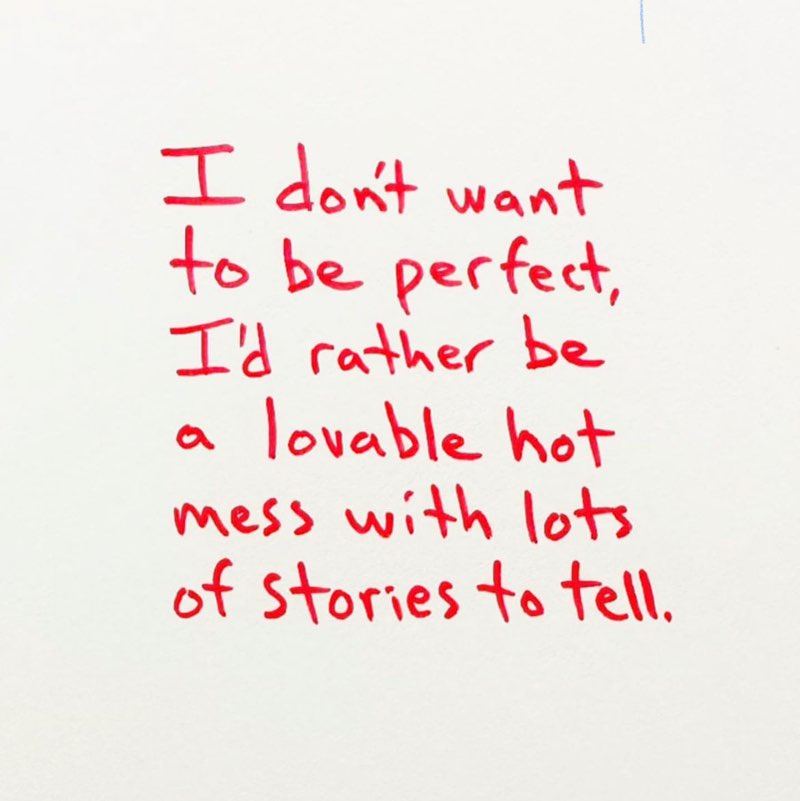 I don't want
to be perfect,
I'd rather be
a lovable hot
mess with lots
of stories to tell.